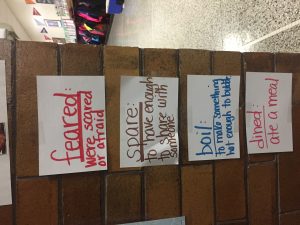 feared:
were scared
or afraid
spare:
to have enough
to share with
someone
boil:
to make something
hot enough to bubble
dined:
ate a meal